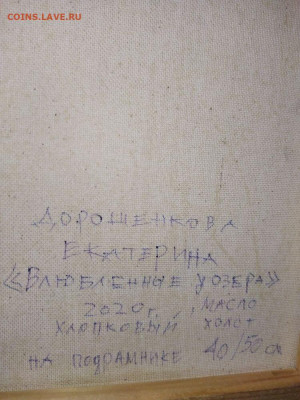 COINS.LAVE.RU
ДОРОШЕНКОВА
ЕКАТЕРИНА
«ВЛЮБЛЕННЫЕ У ОЗЕРА»
2020г., МАСЛО
ХЛОПКОВЫЙ ХОЛСТ
НА ПОДРАМНИКЕ 40/50 см